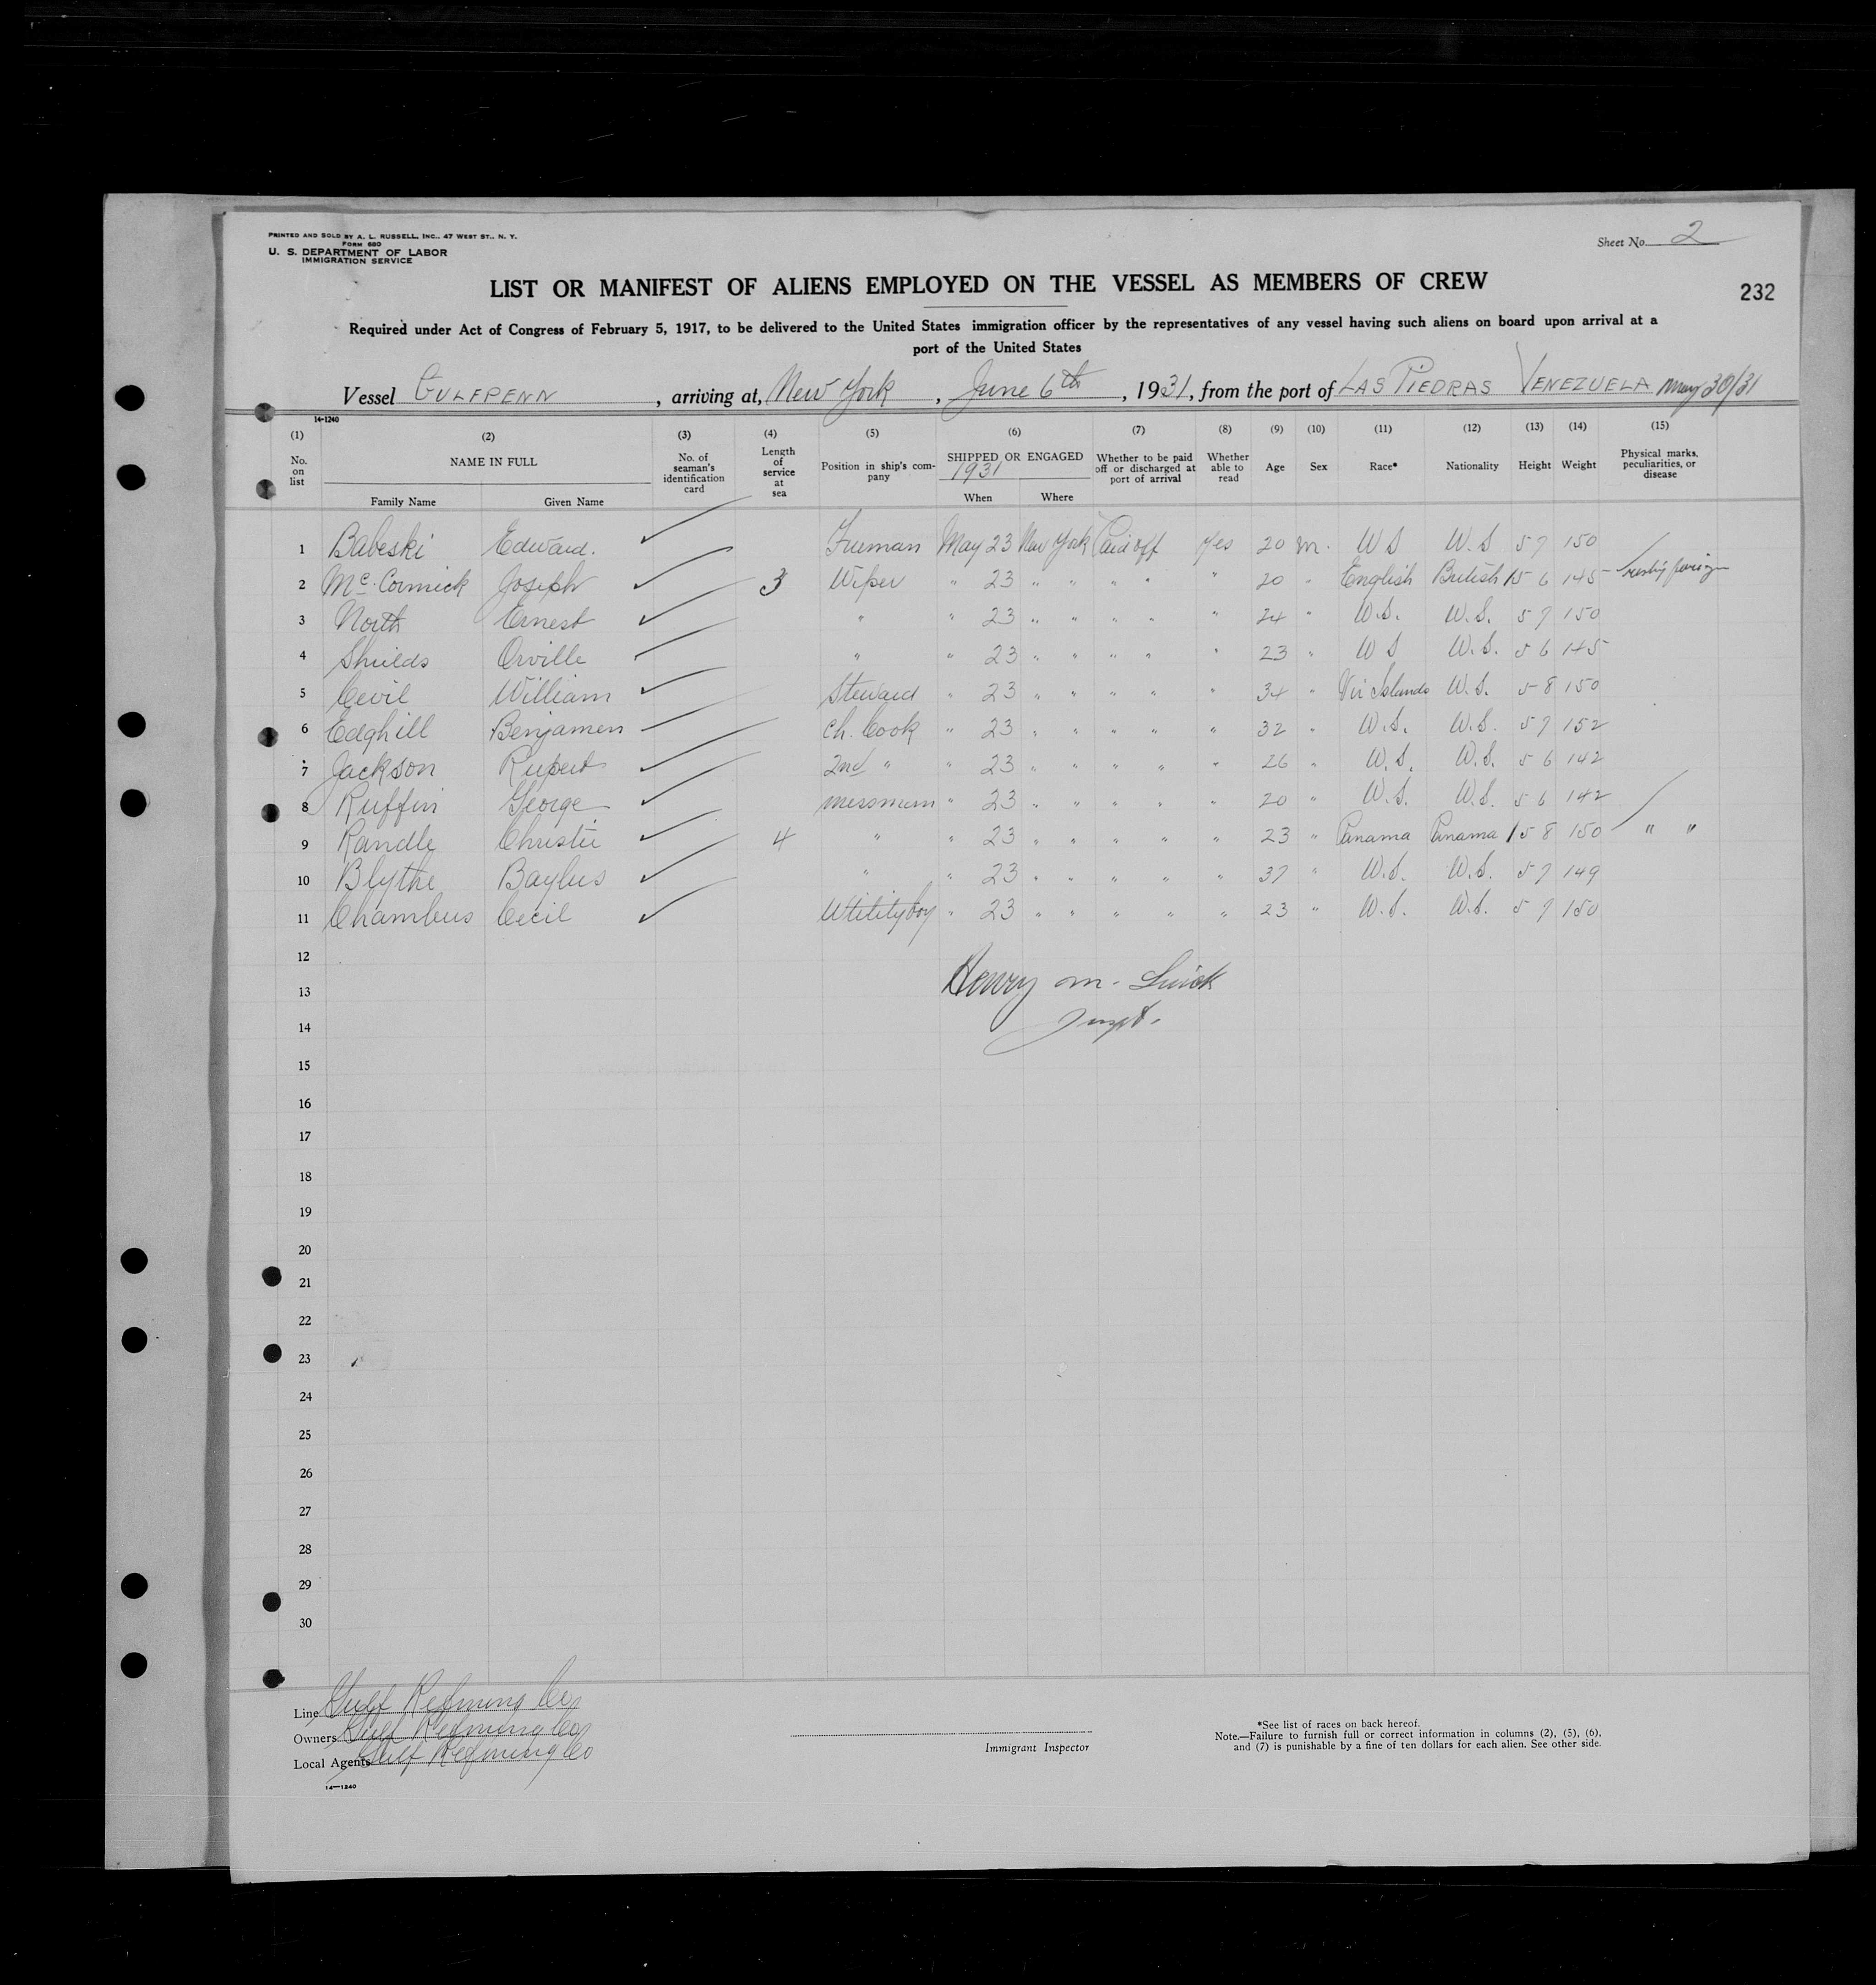 PRINTED AND SOLD BY A. L. RUSSELL, INC., 47 WEST ST., N. Y.
FORM 680
U. S. DEPARTMENT OF LABOR
IMMIGRATION SERVICE
Sheet No. 2
LIST OR MANIFEST OF ALIENS EMPLOYED ON THE VESSEL AS MEMBERS OF CREW
232
Required under Act of Congress of February 5, 1917, to be delivered to the United States immigration officer by the representatives of any vessel having such aliens on board upon arrival at a
port of the United States
Vessel GULFPENN, arriving at, New York, June 6th, 1931, from the port of LAS PIEDRAS VENEZUELA May 30/31
14-1240
(1) (2) (3) (4) (5) (6) (7) (8) (9) (10) (11) (12) (13) (14) (15)
No. on list NAME IN FULL Family Name Given Name No. of seaman's identification card Length of service at sea Position in ship's company SHIPPED OR ENGAGED 1931 When Where Whether to be paid off or discharged at port of arrival Whether able to read Age Sex Race* Nationality Height Weight Physical marks, peculiarities, or disease
1 Babeski Edward. Fireman May 23 New York Paid off Yes 20 m. U S U.S 5 7 150
2 Mc. Cormick Joseph 3 Wiper " 23 " " " " " 20 " English British 5 6 145
3 North Ernest " " 23 " " " " " 24 " U.S. U.S. 5 7 150
4 Shields Orville " " 23 " " " " " 23 " U S U.S. 5 6 145
5 Cevil William Steward " 23 " " " " " 34 " Vir Islands U.S. 5 8 150
6 Edghill Benjamen Ch. Cook " 23 " " " " " 32 " U.S. U.S. 5 7 152
7 Jackson Rupert 2nd " " 23 " " " " " 26 " U.S. U.S. 5 6 142
8 Ruffin George messman " 23 " " " " " 20 " U.S. U.S. 5 6 142
9 Randle Christie 4 " " 23 " " " " " 23 " Panama Panama 5 8 150 " "
10 Blythe Baylus " " 23 " " " " " 37 " U.S. U.S. 5 7 149
11 Chambers Cecil Utility boy " 23 " " " " " 23 " U.S. U.S. 5 7 150
12
Henry m.
13
14
15
16
17
18
19
20
21
22
23
24
25
26
27
28
29
30
Line Gulf Refining Co
Owners Gulf Refining Co
Local Agents Gulf Refining Co
14-1240
Immigrant Inspector
*See list of races on back hereof.
Note.—Failure to furnish full or correct information in columns (2), (5), (6),
and (7) is punishable by a fine of ten dollars for each alien. See other side.